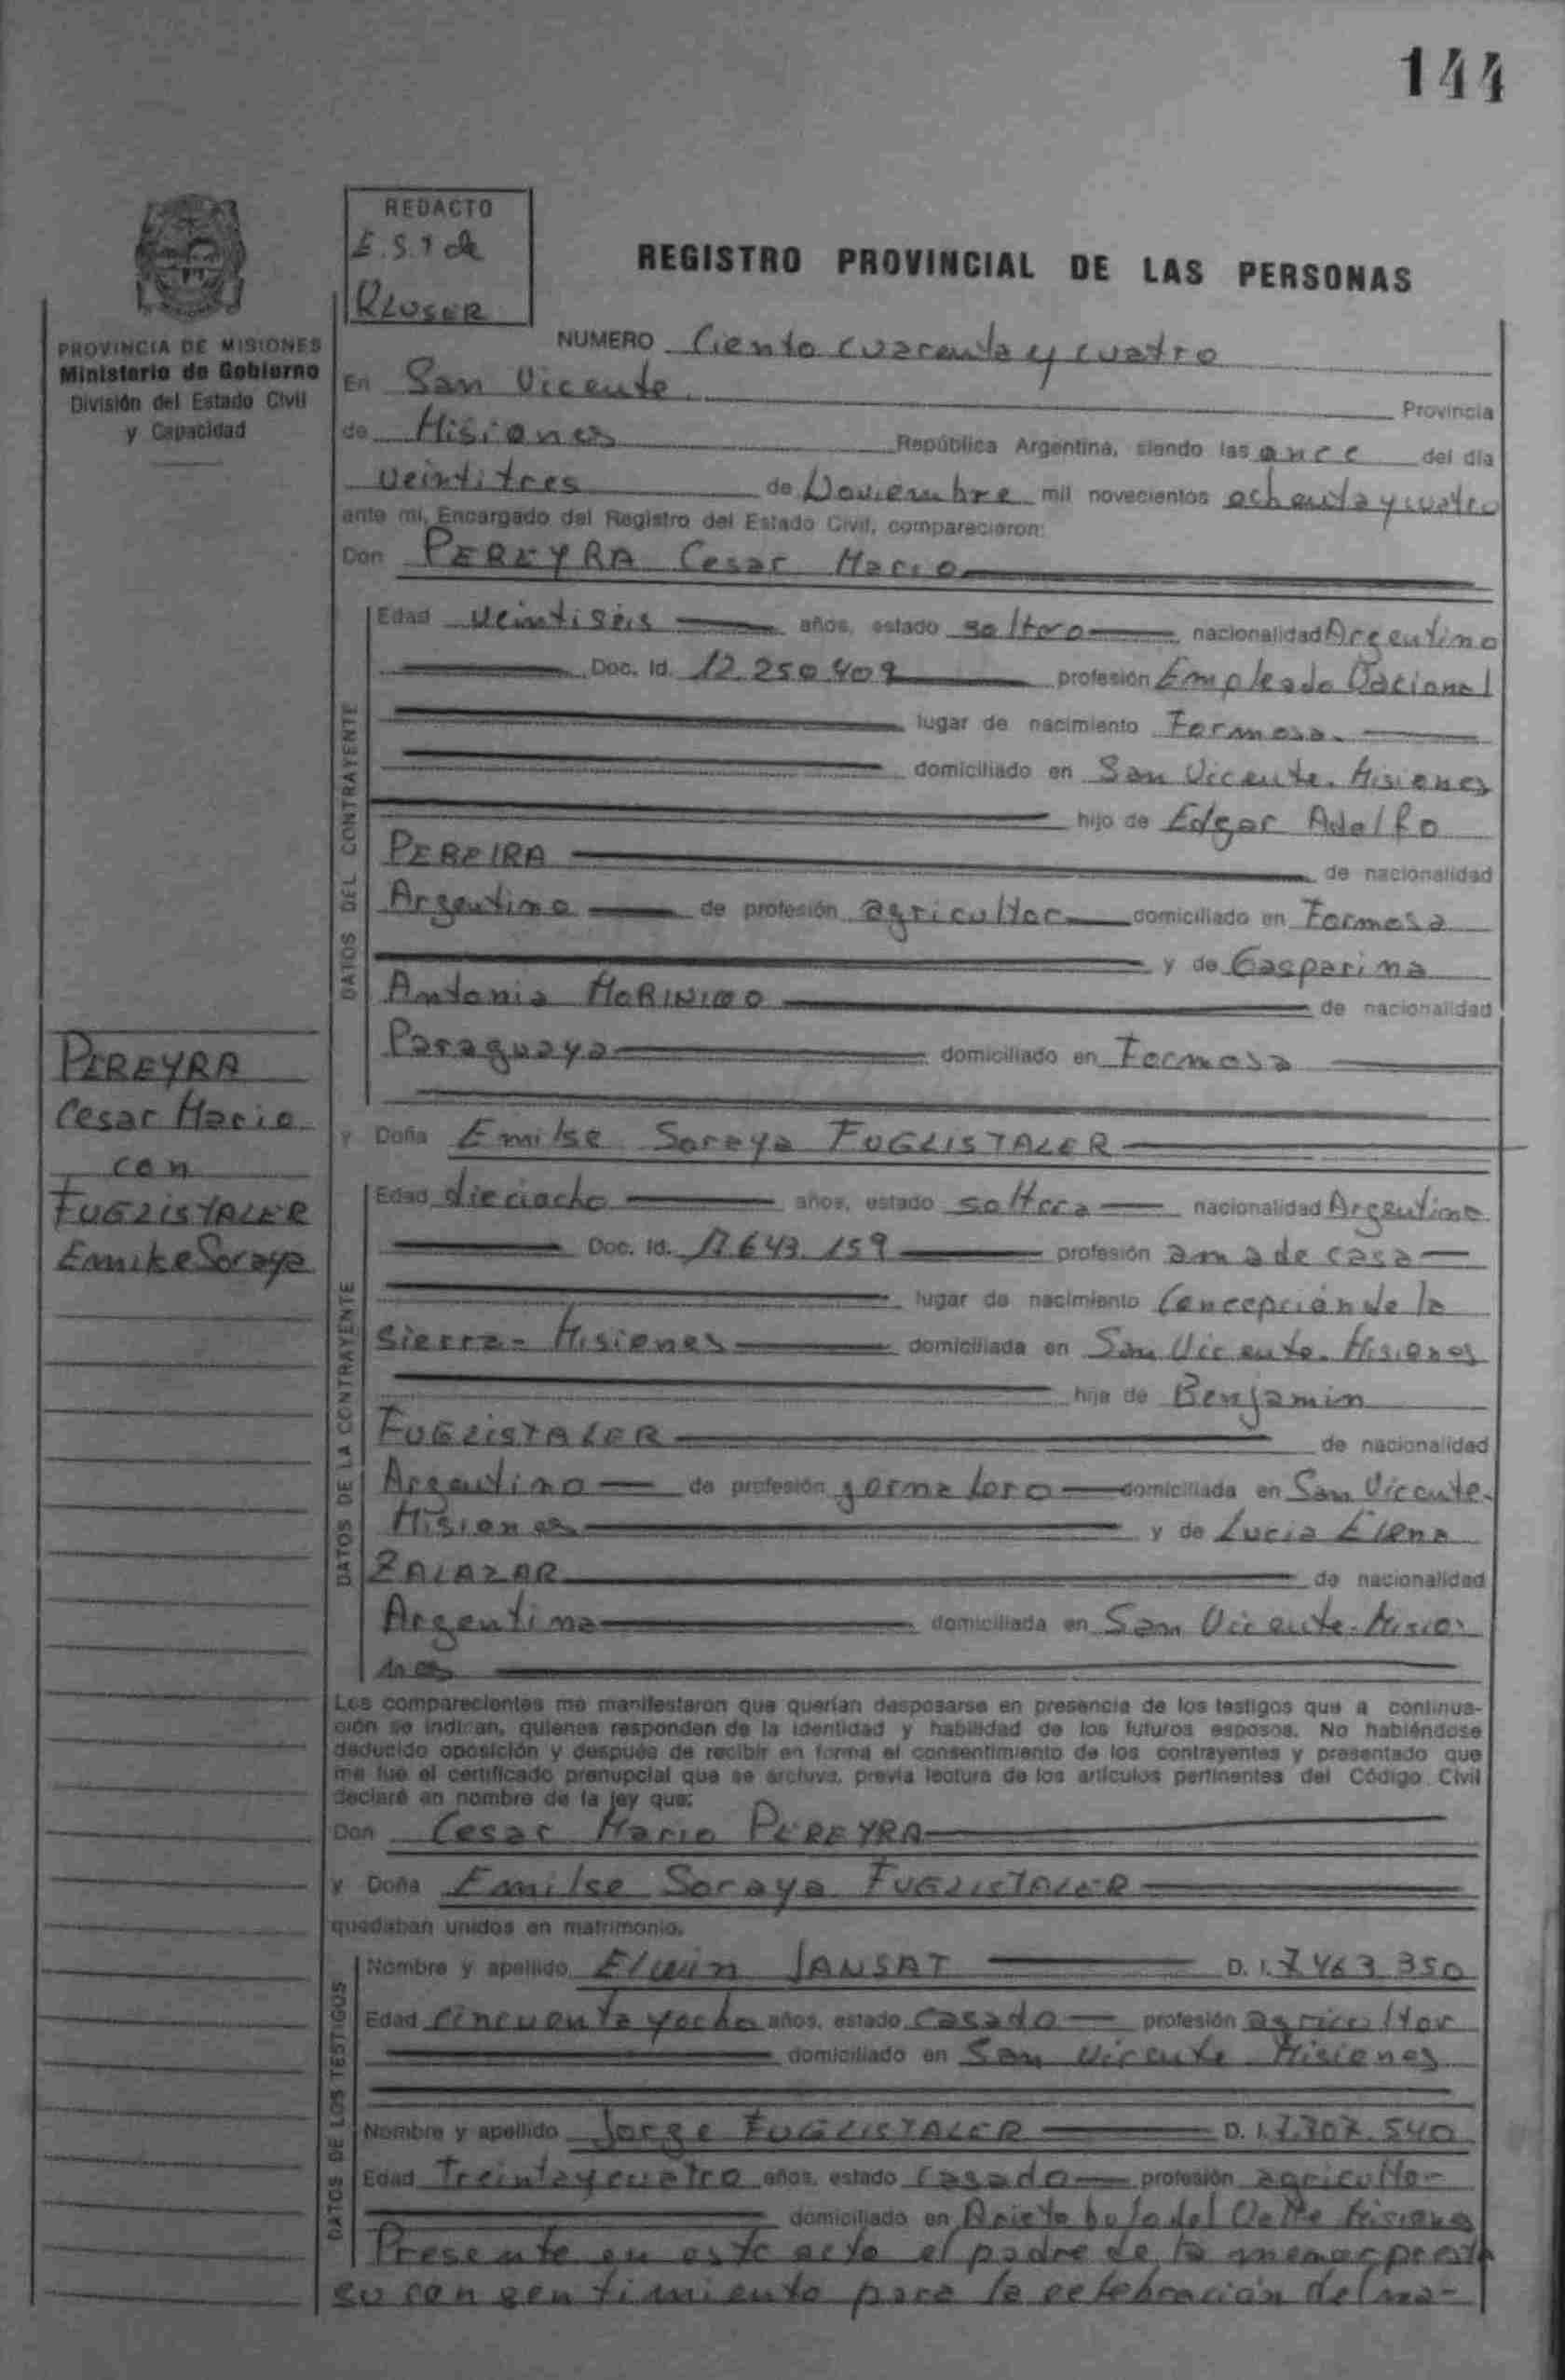 144
REDACTO
E.S.T de
KLUSER
REGISTRO PROVINCIAL DE LAS PERSONAS
PROVINCIA DE MISIONES
Ministerio de Gobierno
División del Estado Civil
y Capacidad
NUMERO Ciento cuarenta y cuatro
En San Vicente Provincia
de Misiones República Argentina, siendo las once del día
veintitres de Noviembre mil novecientos ochenta y cuatro
ante mí, Encargado del Registro del Estado Civil, comparecieron:
Don PEREYRA Cesar Mario
DATOS DEL CONTRAYENTE
Edad veintiseis años, estado soltero nacionalidad Argentino
Doc. Id. 12.250.409 profesión Empleado Nacional
lugar de nacimiento Formosa.
domiciliado en San Vicente. Misiones
hijo de Edgar Adolfo
PEREIRA de nacionalidad
Argentino de profesión agricultor domiciliado en Formosa
y de Gasparina
Antonia MORINIGO de nacionalidad
Paraguaya domiciliado en Formosa
PEREYRA
Cesar Mario
con
FUGLISTALER
Emilse Soraya
y Doña Emilse Soraya FUGLISTALER
DATOS DE LA CONTRAYENTE
Edad dieciocho años, estado soltera nacionalidad Argentina
Doc. Id. 17.643.159 profesión ama de casa
lugar de nacimiento Concepción de la
Sierra - Misiones domiciliada en San Vicente. Misiones
hija de Benjamin
FUGLISTALER de nacionalidad
Argentino de profesión jornalero domiciliada en San Vicente.
Misiones y de Lucia Elena
ZALAZAR de nacionalidad
Argentina domiciliada en San Vicente. Misio-
nes
Los comparecientes me manifestaron que querían desposarse en presencia de los testigos que a continua-
ción se indican, quienes responden de la identidad y habilidad de los futuros esposos. No habiéndose
deducido oposición y después de recibir en forma el consentimiento de los contrayentes y presentado que
me fué el certificado prenupcial que se archiva, previa lectura de los artículos pertinentes del Código Civil
declaré en nombre de la ley que:
Don Cesar Mario PEREYRA
y Doña Emilse Soraya FUGLISTALER
quedaban unidos en matrimonio.
DATOS DE LOS TESTIGOS
Nombre y apellido Elwin JANSAT D. I. 7.463.350
Edad cincuenta y ocho años, estado casado profesión agricultor
domiciliado en San Vicente Misiones
Nombre y apellido Jorge FUGLISTALER D. I. 7.707.540
Edad Treinta y cuatro años, estado casado profesión agricultor
domiciliado en del Valle Misiones
Presente en este acto el padre de la menor presta
su consentimiento para la celebración del ma-